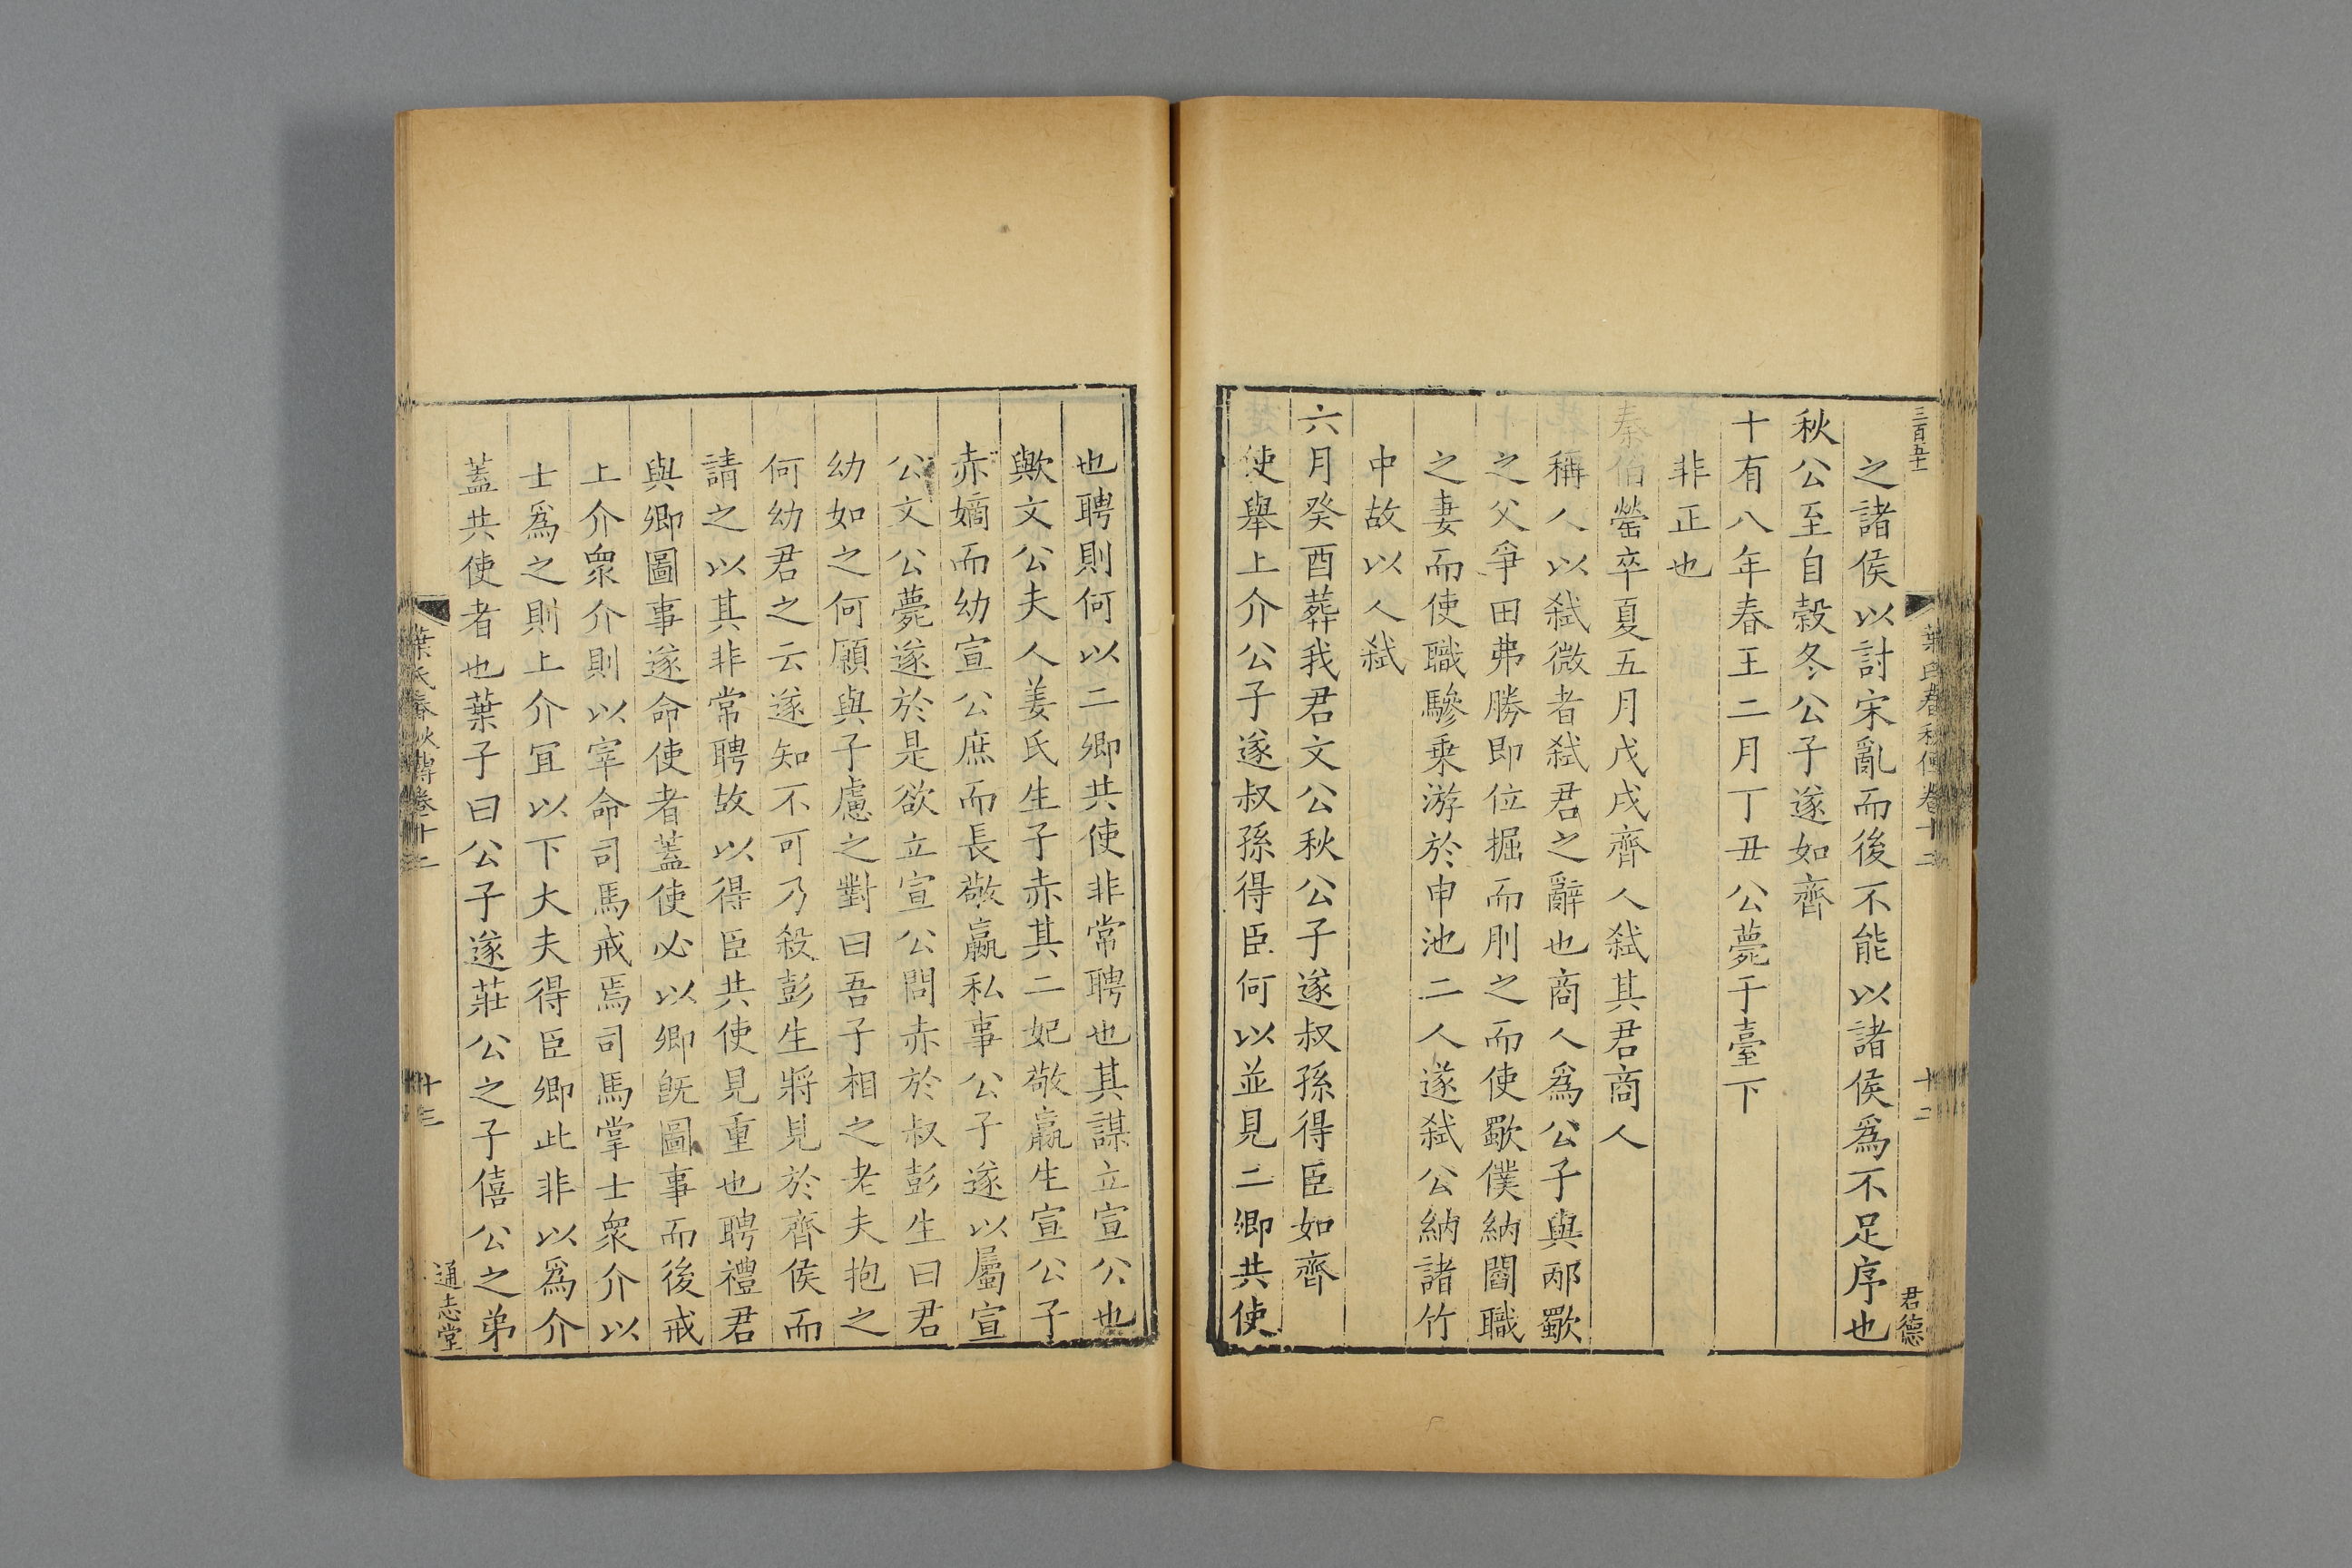 三百五十
葉氏春秋傳卷十二
十二
君德
之諸侯以討宋亂而後不能以諸侯爲不足序也
秋公至自穀冬公子遂如齊
十有八年春王二月丁丑公薨于臺下
非正也
秦伯罃卒夏五月戊戌齊人弑其君商人
稱人以弑微者弑君之辭也商人爲公子與邴歜
之父爭田弗勝即位掘而刖之而使歜僕納閻職
之妻而使職驂乗游於申池二人遂弑公納諸竹
中故以人弑
六月癸酉葬我君文公秋公子遂叔孫得臣如齊
使舉上介公子遂叔孫得臣何以並見二卿共使
也聘則何以二卿共使非常聘也其謀立宣公也
歟文公夫人姜氏生子赤其二妃敬嬴生宣公子
赤嫡而幼宣公庶而長敬嬴私事公子遂以屬宣
公文公薨遂於是欲立宣公問赤於叔彭生曰君
幼如之何願與子慮之對曰吾子相之老夫抱之
何幼君之云遂知不可乃殺彭生將見於齊侯而
請之以其非常聘故以得臣共使見重也聘禮君
與卿圖事遂命使者蓋使必以卿旣圖事而後戒
上介衆介則以宰命司馬戒焉司馬掌士衆介以
士爲之則上介冝以下大夫得臣卿此非以爲介
蓋共使者也葉子曰公子遂莊公之子僖公之弟
葉氏春秋傳卷十二
十三
通志堂